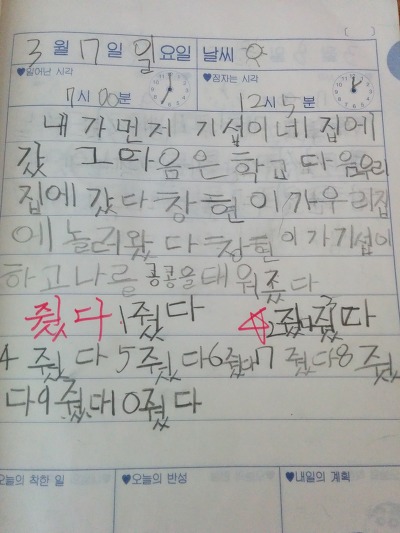 3월 17일 일요일 날씨
♥일어난 시각 ♥잠자는 시각
7시 00분 12시 5분
내가먼저 기섭이네집에
갔 그마음은학고 다음우리
집에 갔다 창현이가우리집
에 놀러왔다 창현이가기섭이
하고나를 콩콩을태워줬다
줬다 1줬다 2줬다3줬다
4 줬다 5줬다6줬다7 줬다8줬
다9줬다10줬다
오늘의 착한 일 ♥오늘의 반성 ♥내일의 계획